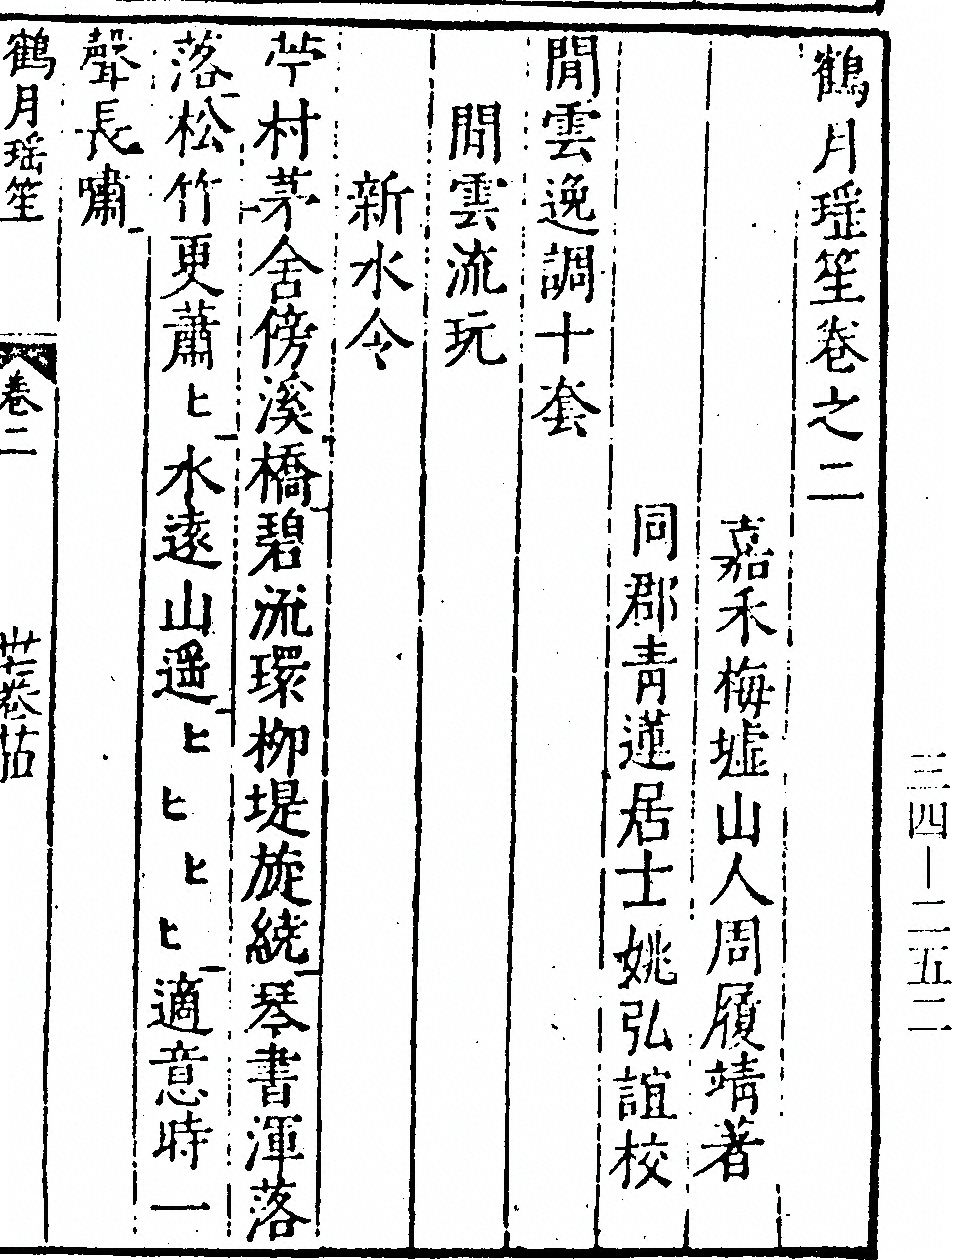 三四—二五二
鶴月瑶笙卷之二
嘉禾梅墟山人周履靖著
同郡青蓮居士姚弘誼校
閒雲逸調十套
閒雲流玩
新水令
艼村茅舍傍溪橋碧流環柳堤旋繞琴書渾落
落松竹更蕭ヒ水遠山遥ヒヒヒヒ適意時一
聲長嘯
鶴月瑶笙 卷二